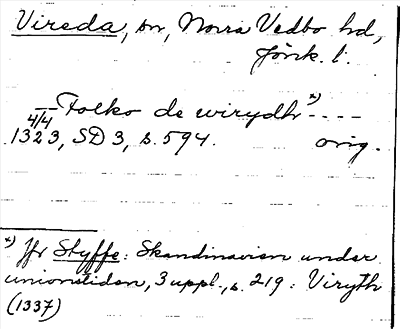 Vireda, sn, Norra Vedbo hd,
Jönk. l.
-- Folko de wirydh x) ----
4/4
1323, SD 3, s. 594. orig.
x) Jfr Styffe: Skandinavien under
unionstiden, 3 uppl., s. 219: Viryth
(1337)